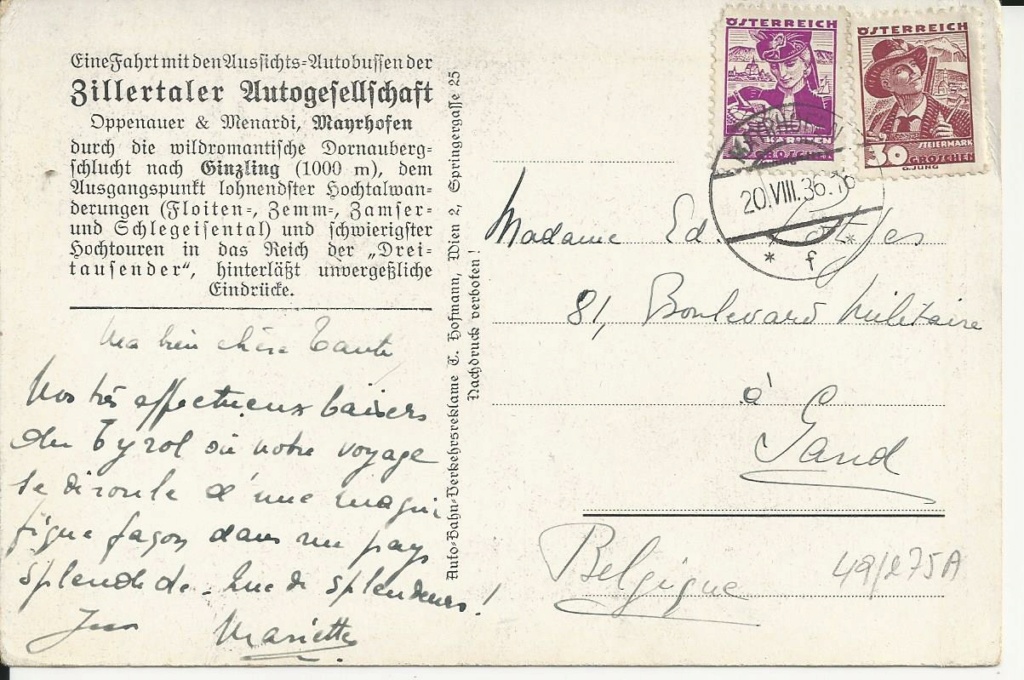 Eine Fahrt mit den Aussichts-Autobussen der
Zillertaler Autogesellschaft
Oppenauer & Menardi, Mayrhofen
durch die wildromantische Dornauberg-
schlucht nach Ginzling (1000 m), dem
Ausgangspunkt lohnendster Hochtalwan-
derungen (Floiten-, Zemm-, Zamser-
und Schlegeisental) und schwierigster
Hochtouren in das Reich der „Drei-
tausender", hinterläßt unvergeßliche
Eindrücke.
Ma bien chère Tante
Nos très affectueux baisers
du Tyrol où notre voyage
se déroule d'une magni
fique façon dans un pays
splendide. Que de splendeurs!
Mariette
Auto-Bahn-Verkehrsreklame C. Hofmann, Wien 2, Springergasse 25
Nachdruck verboten!
ÖSTERREICH
GROSCHEN
ÖSTERREICH
STEIERMARK
30 GROSCHEN
G. JUNG
MAYRHOFEN
20.VIII.36.16
* f *
Madame Ed.
81, Boulevard Militaire
à
Gand
Belgique
49/275A